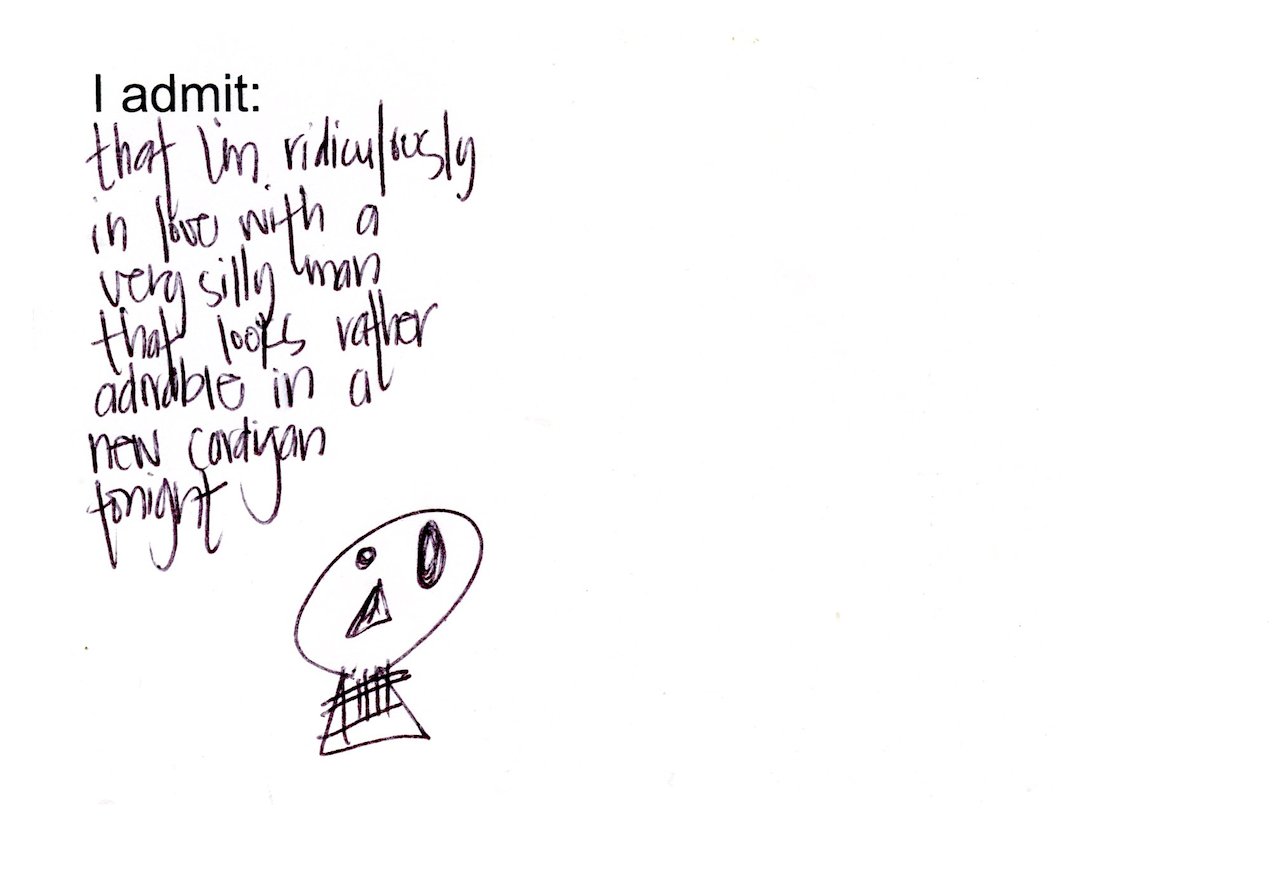 I admit:
that I'm ridiculously
in love with a
very silly man
that looks rather
adorable in a
new cardigan
tonight